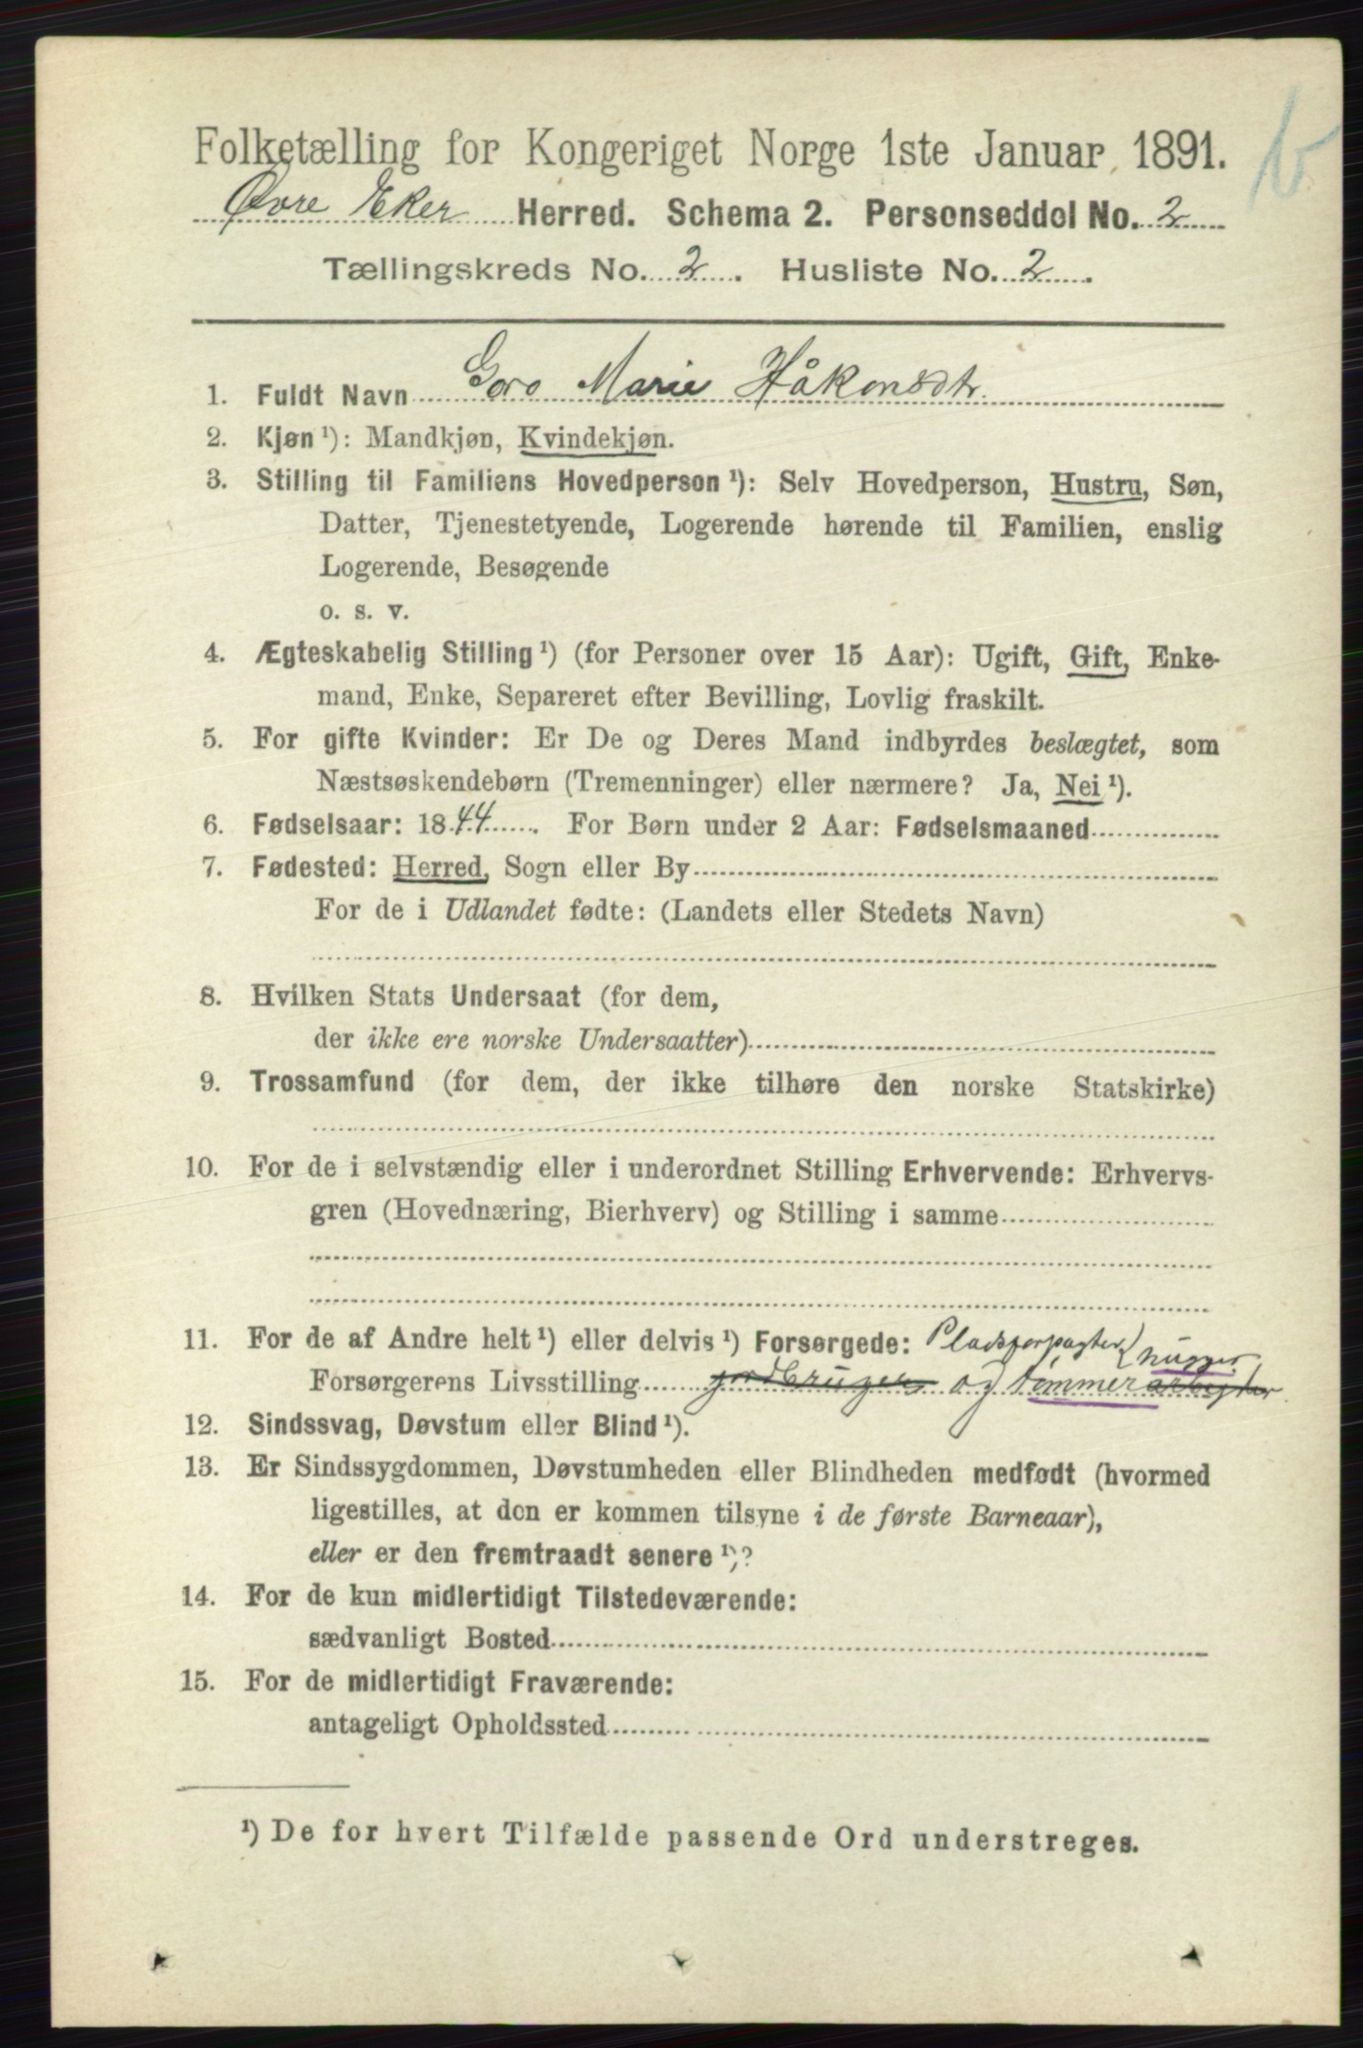 Folketælling for Kongeriget Norge 1ste Januar 1891.
Øvre Eker Herred. Schema 2. Personseddel No. 2
Tællingskreds No. 2. Husliste No. 2.
1. Fuldt Navn Goro Marie Håkonsdtr.
2. Kjøn¹): Mandkjøn, Kvindekjøn.
3. Stilling til Familiens Hovedperson¹): Selv Hovedperson, Hustru, Søn,
Datter, Tjenestetyende, Logerende hørende til Familien, enslig
Logerende, Besøgende
o. s. v.
4. Ægteskabelig Stilling¹) (for Personer over 15 Aar): Ugift, Gift, Enke-
mand, Enke, Separeret efter Bevilling, Lovlig fraskilt.
5. For gifte Kvinder: Er De og Deres Mand indbyrdes beslægtet, som
Næstsøskendebørn (Tremenninger) eller nærmere? Ja, Nei¹).
6. Fødselsaar: 1844. For Børn under 2 Aar: Fødselsmaaned
7. Fødested: Herred, Sogn eller By
For de i Udlandet fødte: (Landets eller Stedets Navn)
8. Hvilken Stats Undersaat (for dem,
der ikke ere norske Undersaatter)
9. Trossamfund (for dem, der ikke tilhøre den norske Statskirke)
10. For de i selvstændig eller i underordnet Stilling Erhvervende: Erhvervs-
gren (Hovednæring, Bierhverv) og Stilling i samme
11. For de af Andre helt¹) eller delvis¹) Forsørgede: Pladsforpagter
hugger
Forsørgerens Livsstilling jordbruger og tømmerarbeyder
12. Sindssvag, Døvstum eller Blind¹).
13. Er Sindssygdommen, Døvstumheden eller Blindheden medfødt (hvormed
ligestilles, at den er kommen tilsyne i de første Barneaar),
eller er den fremtraadt senere¹)?
14. For de kun midlertidigt Tilstedeværende:
sædvanligt Bosted
15. For de midlertidigt Fraværende:
antageligt Opholdssted
¹) De for hvert Tilfælde passende Ord understreges.